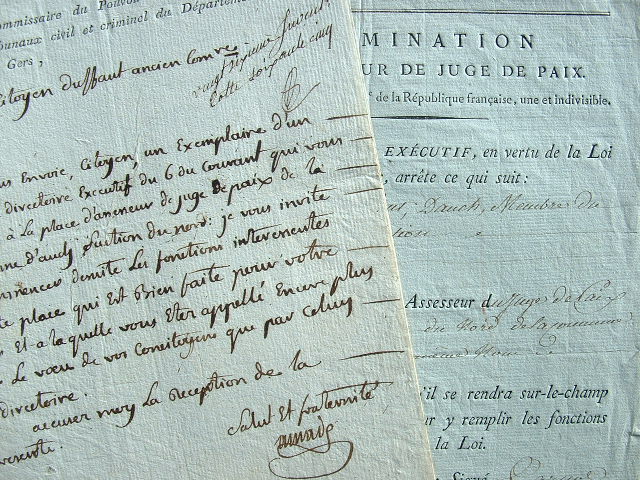 ommissaire du Pouvoi
ibunaux civil et criminel du Départeme
Gers,
Citoyen Dussaut ancien Comre
cotte soixante cinq
us Envoie, Citoyen, un Exemplaire d'un
directoire Executif du 6 du courant qui vous
à La place d'assesseur de juge de paix de la
nne d'auch section du nord: je vous invite
mmencer densuite Les fonctions interessentes
te place qui Est Bien faite pour votre
Et a laquelle vous Eter appellé Encore plus
Le vœu de vos Concitoyens que par Celuy
directoire.
accuser moy La Reception de la
resente.
Salut Et fraternité
MINATION
UR DE JUGE DE PAIX.
f de la République française, une et indivisible.
EXÉCUTIF, en vertu de la Loi
, arrête ce qui suit:
Dauch, Membre du
tion
Assesseur du Juge de Paix
du Nord de la commune
'il se rendra sur-le-champ
r y remplir les fonctions
la Loi.
Signé